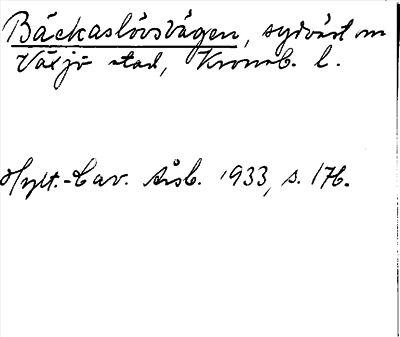 Bäckaslövsvägen, sydväst om
Växjö stad, Kronob. l.
Hylt.-Cav. årsb. 1933, s. 176.